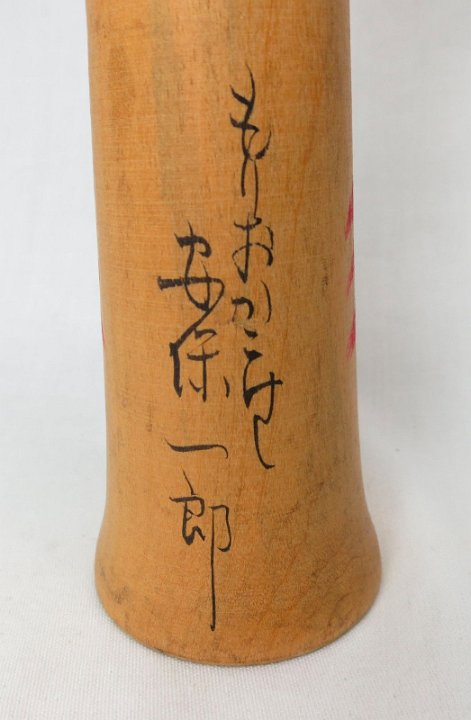 もりおかこけし
安保一郎